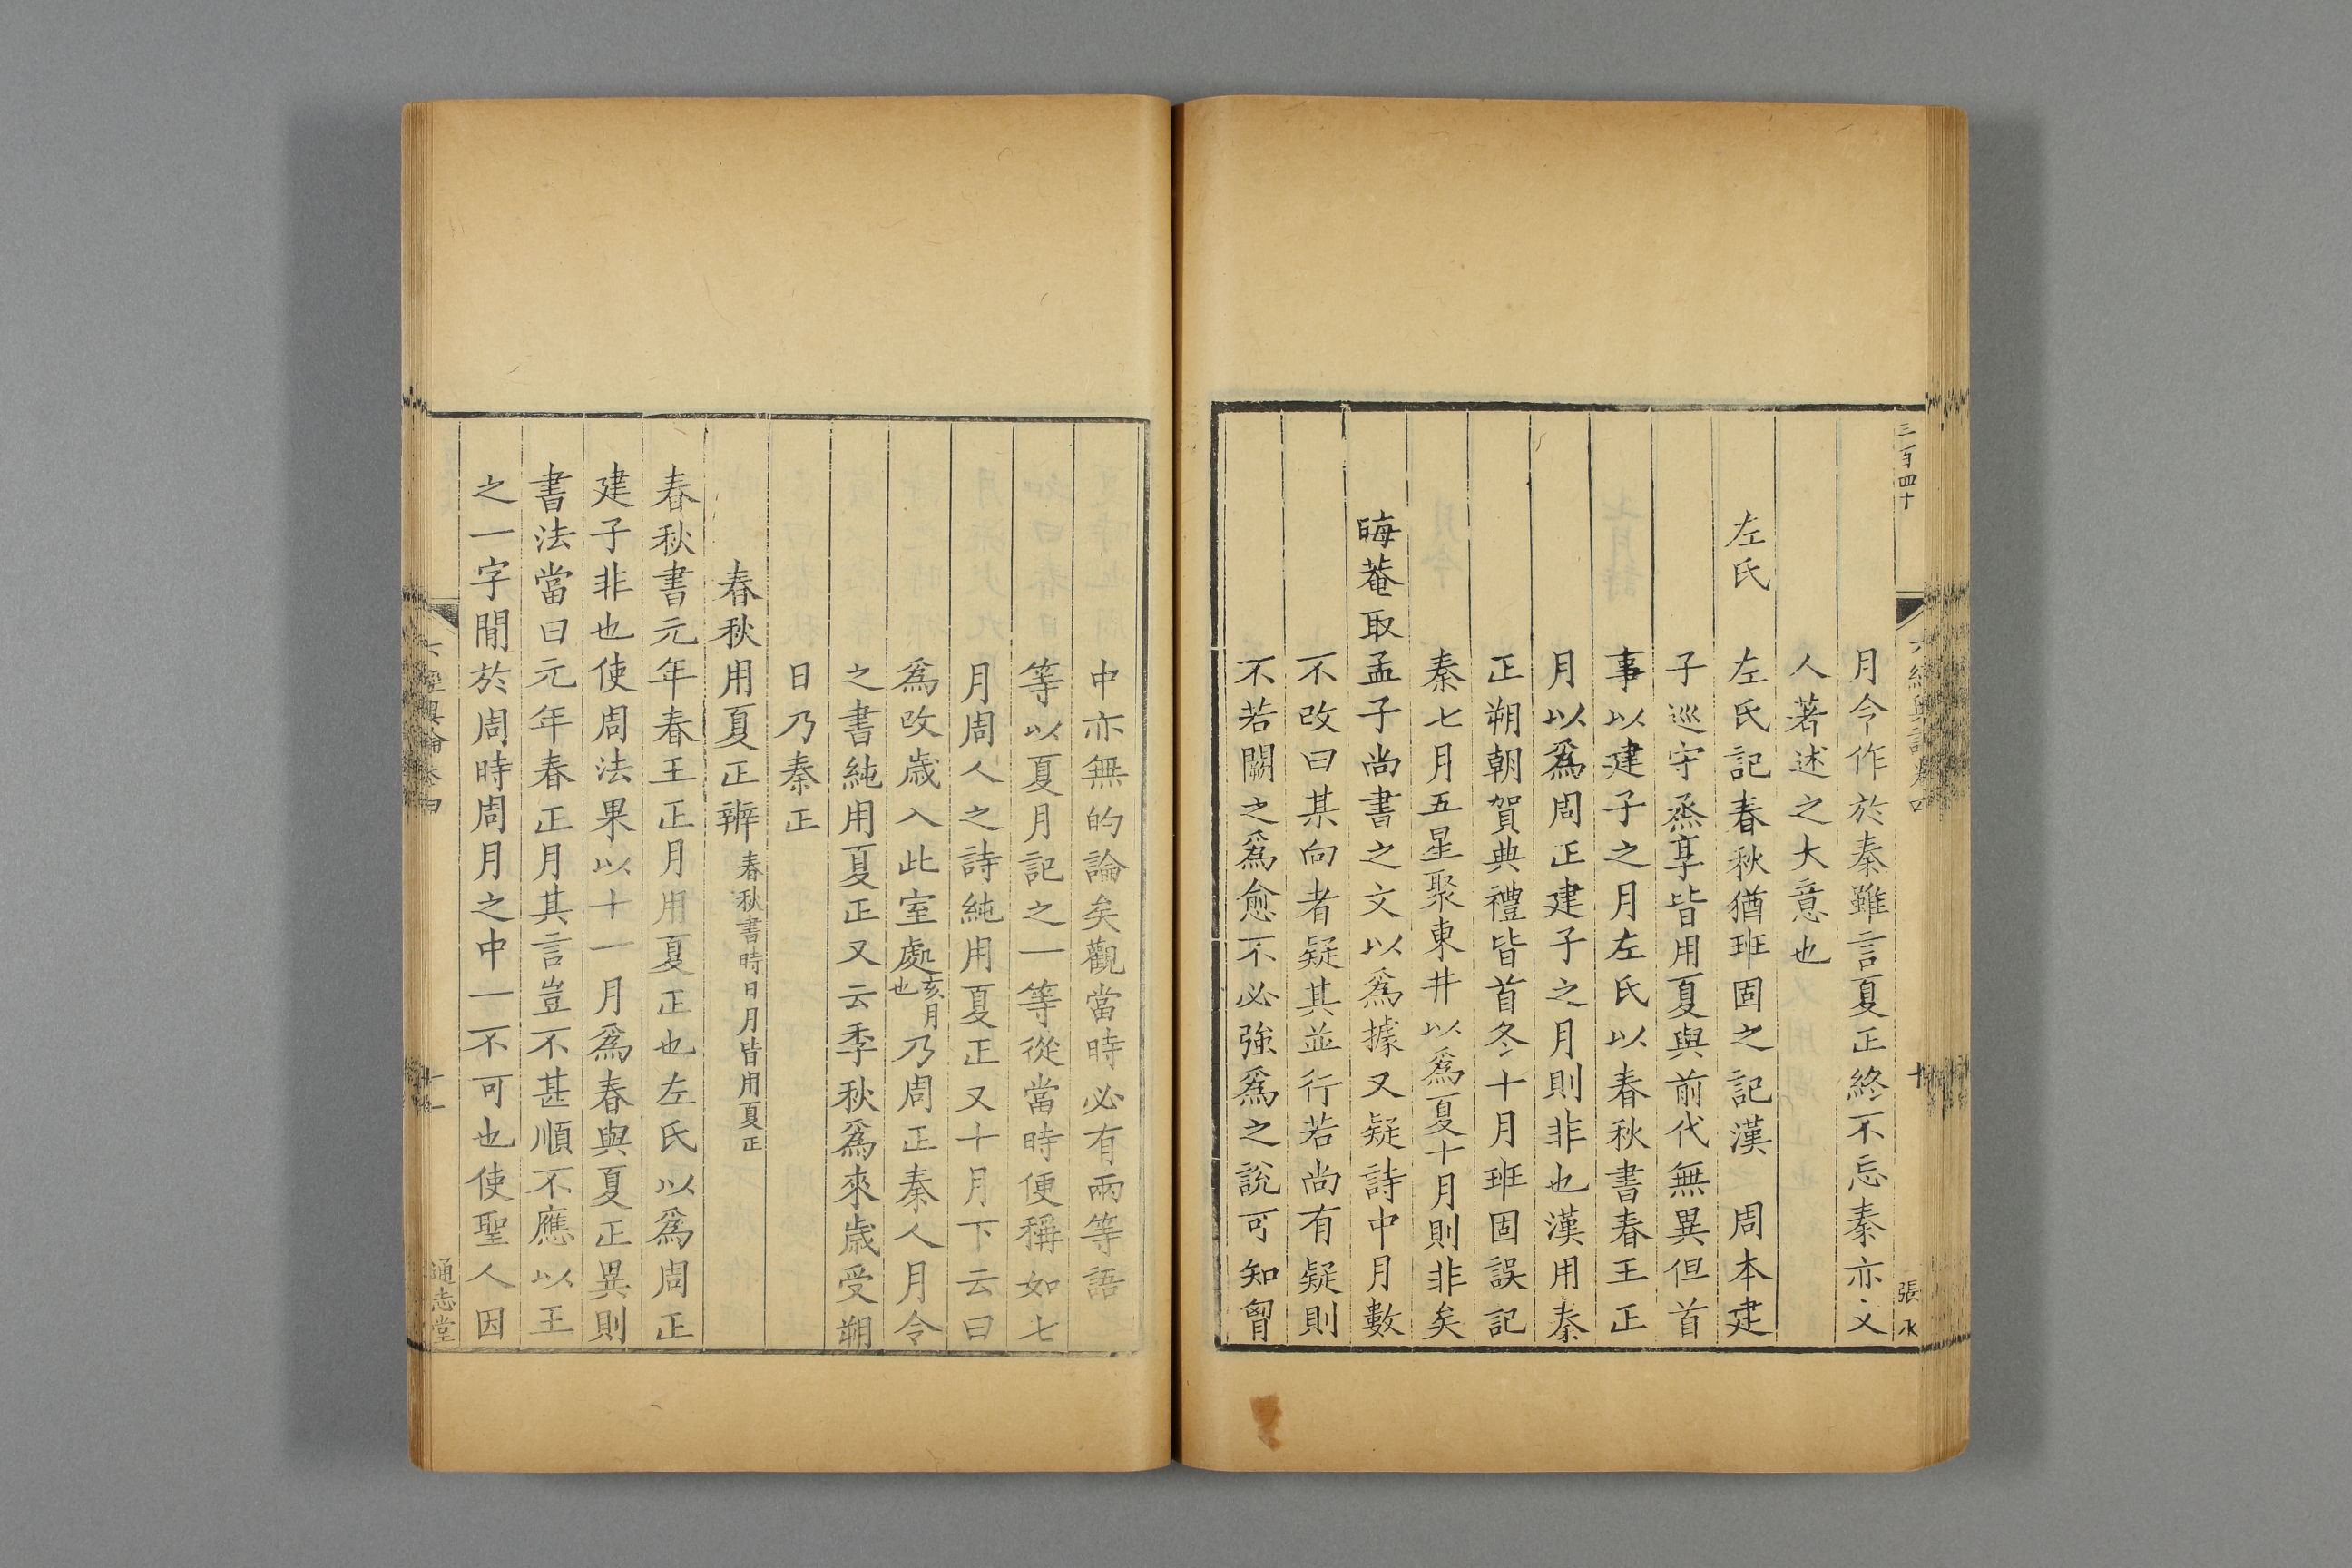 三百四十
張水
月令作於秦雖言夏正終不忘秦亦文
人著述之大意也
左氏　左氏記春秋猶班固之記漢　周本建
子巡守烝享皆用夏與前代無異但首
事以建子之月左氏以春秋書春王正
月以爲周正建子之月則非也漢用秦
正朔朝賀典禮皆首冬十月班固誤記
秦七月五星聚東井以爲夏十月則非矣
晦菴取孟子尚書之文以爲據又疑詩中月數
不改曰某向者疑其並行若尚有疑則
不若闕之爲愈不必強爲之說可知胷
中亦無的論矣觀當時必有兩等語
等以夏月記之一等從當時便稱如七
月周人之詩純用夏正又十月下云曰
爲改歲入此室處亥月也乃周正秦人月令
之書純用夏正又云季秋爲來歲受朔
日乃秦正
春秋用夏正辨春秋書時日月皆用夏正
春秋書元年春王正月用夏正也左氏以爲周正
建子非也使周法果以十一月爲春與夏正異則
書法當曰元年春正月其言豈不甚順不應以王
之一字間於周時周月之中一不可也使聖人因
六經奧論卷四
十一
通志堂